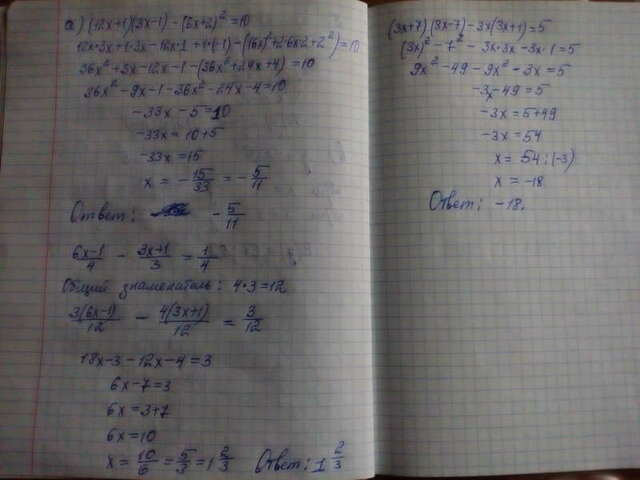 а) (12x+1)(3x-1) - (6x+2)² = 10
12x·3x+1·3x-12x·1+1·(-1)-((6x)²+2·6x·2+2²)=10
36x²+3x-12x-1-(36x²+24x+4)=10
36x²-9x-1-36x²-24x-4=10
-33x-5=10
-33x=10+5
-33x=15
x = -15/33 = -5/11
Ответ: -5/11
6x-1/4 - 3x+1/3 = 1/4
Общий знаменатель: 4·3=12
3(6x-1)/12 - 4(3x+1)/12 = 3/12
18x-3-12x-4=3
6x-7=3
6x=3+7
6x=10
x = 10/6 = 5/3 = 1 2/3 Ответ: 1 2/3
(3x+7)(3x-7)-3x(3x+1)=5
(3x)²-7²-3x·3x-3x·1=5
9x²-49-9x²-3x=5
-3x-49=5
-3x=5+49
-3x=54
x=54:(-3)
x=-18
Ответ: -18.